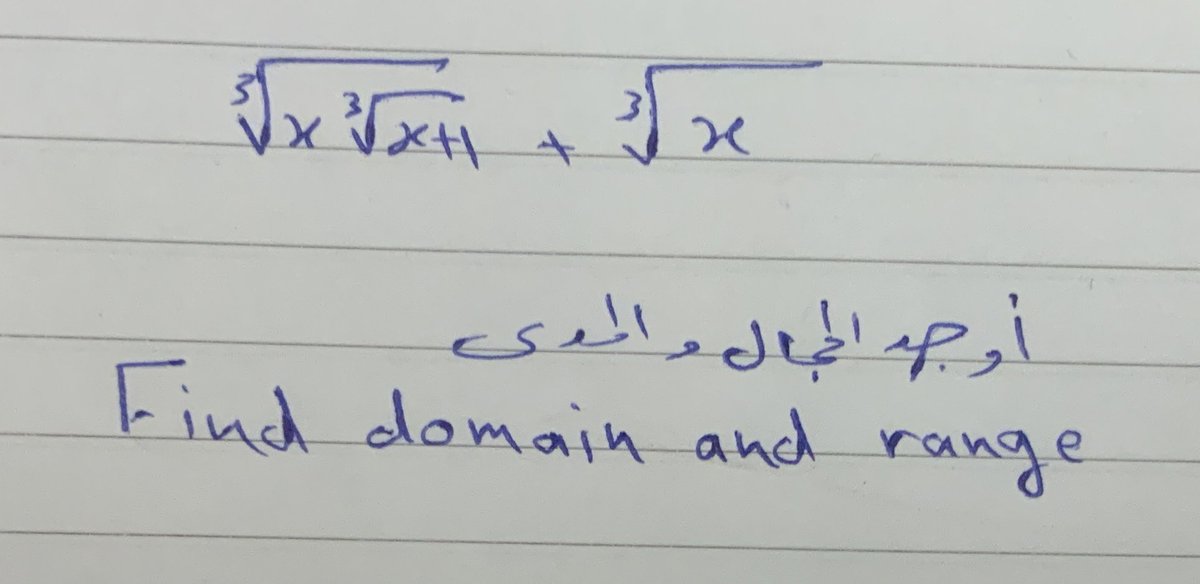 ∛(x ∛(x+1)) + ∛x
أوجد المجال والمدى
Find domain and range